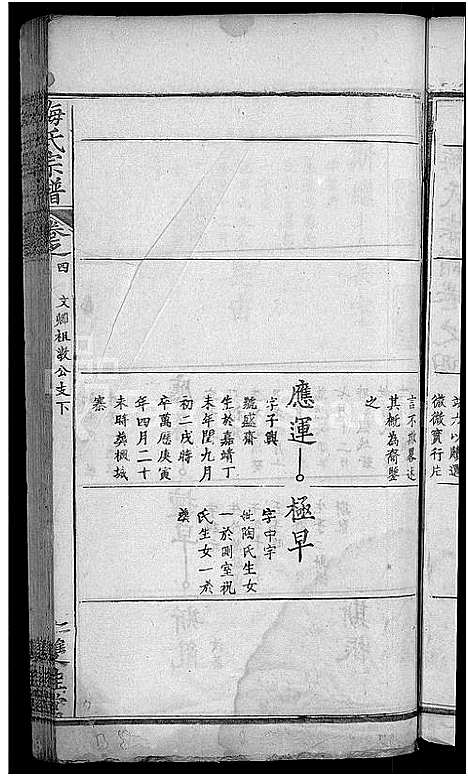 微微實行片
言不欺畧述
其概為裔鑒
之
應運
字子興
號盛齋
生於嘉靖丁
未年閏九月
初二戌時
卒萬歷庚寅
年四月二十
未時葬楓城
寨
極早
字中宇
娶陶氏生女
一於側室祝
氏生女一於
𡊮
梅氏宗譜
卷之四
文卿祖敬公支下
雙桂堂